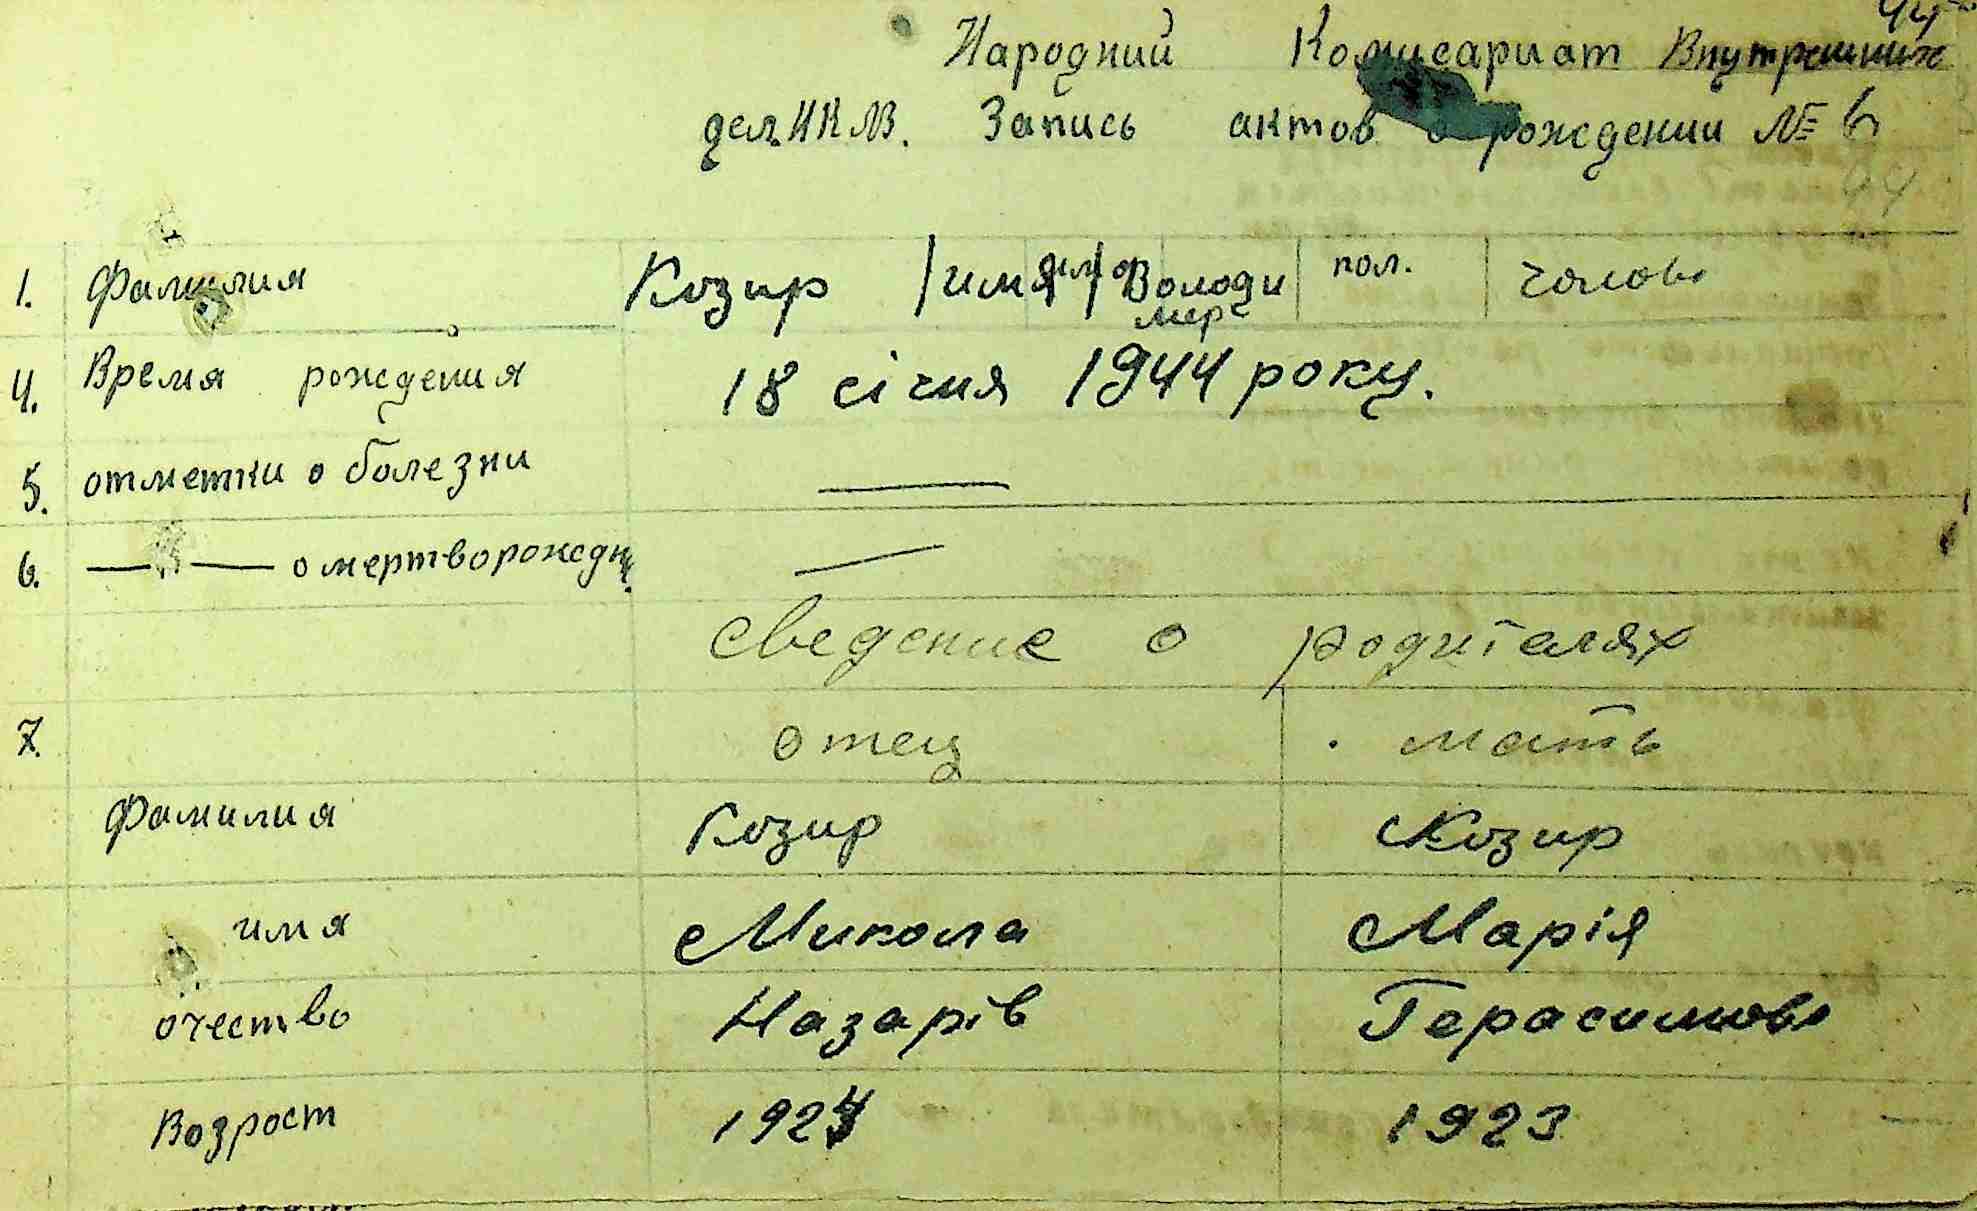 44
Народний Комисариат Внутрениих
дел. НКЛВ. Запись актов о рождении № 6
44
1. Фамилия Козир имя Володи пол. чолов.
мер
4. Время рождения 18 січня 1944 року.
5. отметки о болезни
6. — — о мертворождн.
Сведение о родителях
7. отец мать
Фамилия Козир Козир
имя Микола Марія
очество Назарів Герасимов
Возрост 1924 1923